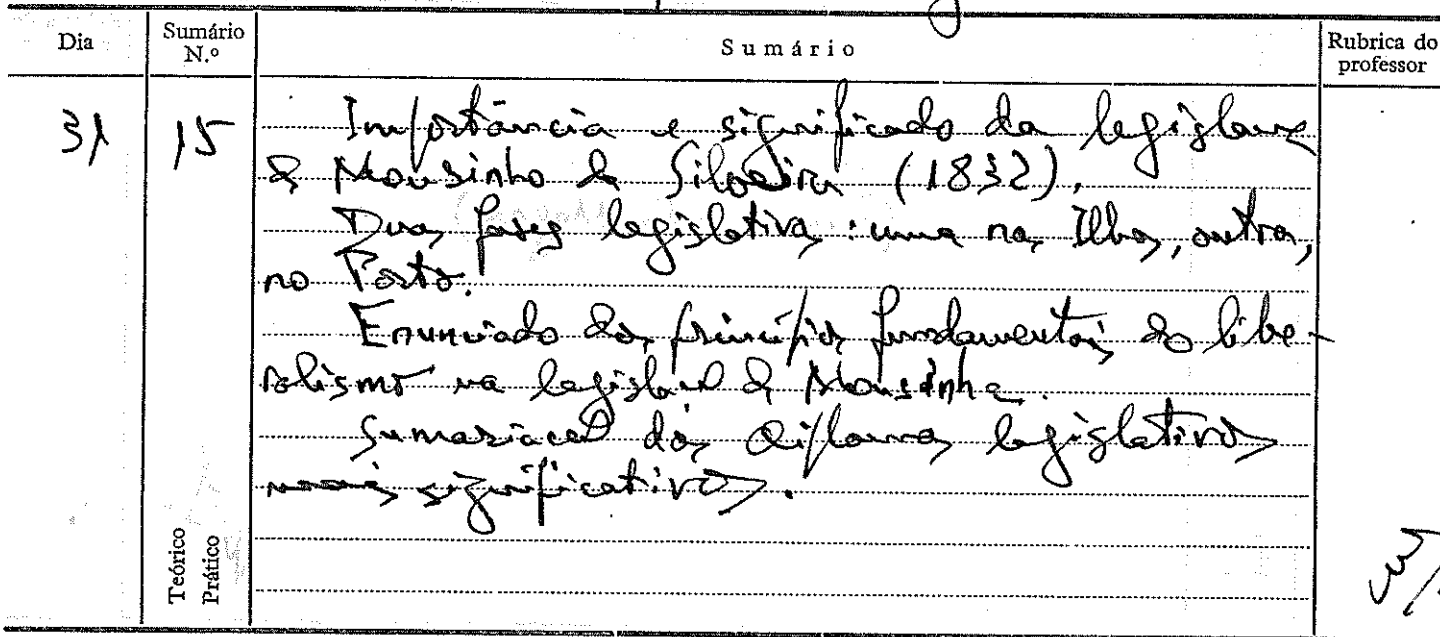 Dia
Sumário N.º
Sumário
Rubrica do professor
31
15
Importância e significado da legislação
de Mousinho da Silveira (1832).
Duas fases legislativas: uma nas Ilhas, outra,
no Porto.
Enunciado dos princípios fundamentais do libe-
ralismo na legislação de Mousinho.
Sumariação dos diplomas legislativos
mais significativos.
Teórico
Prático